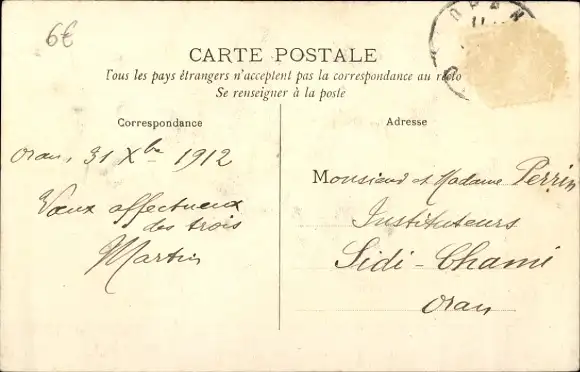 6€
ORAN
CARTE POSTALE
Tous les pays étrangers n'acceptent pas la correspondance au recto
Se renseigner à la poste
Correspondance
Oran, 31 Xbre 1912
Vœux affectueux
des trois
Martin
Adresse
Monsieur et Madame Perrin
Instituteurs
Sidi-Chami
Oran